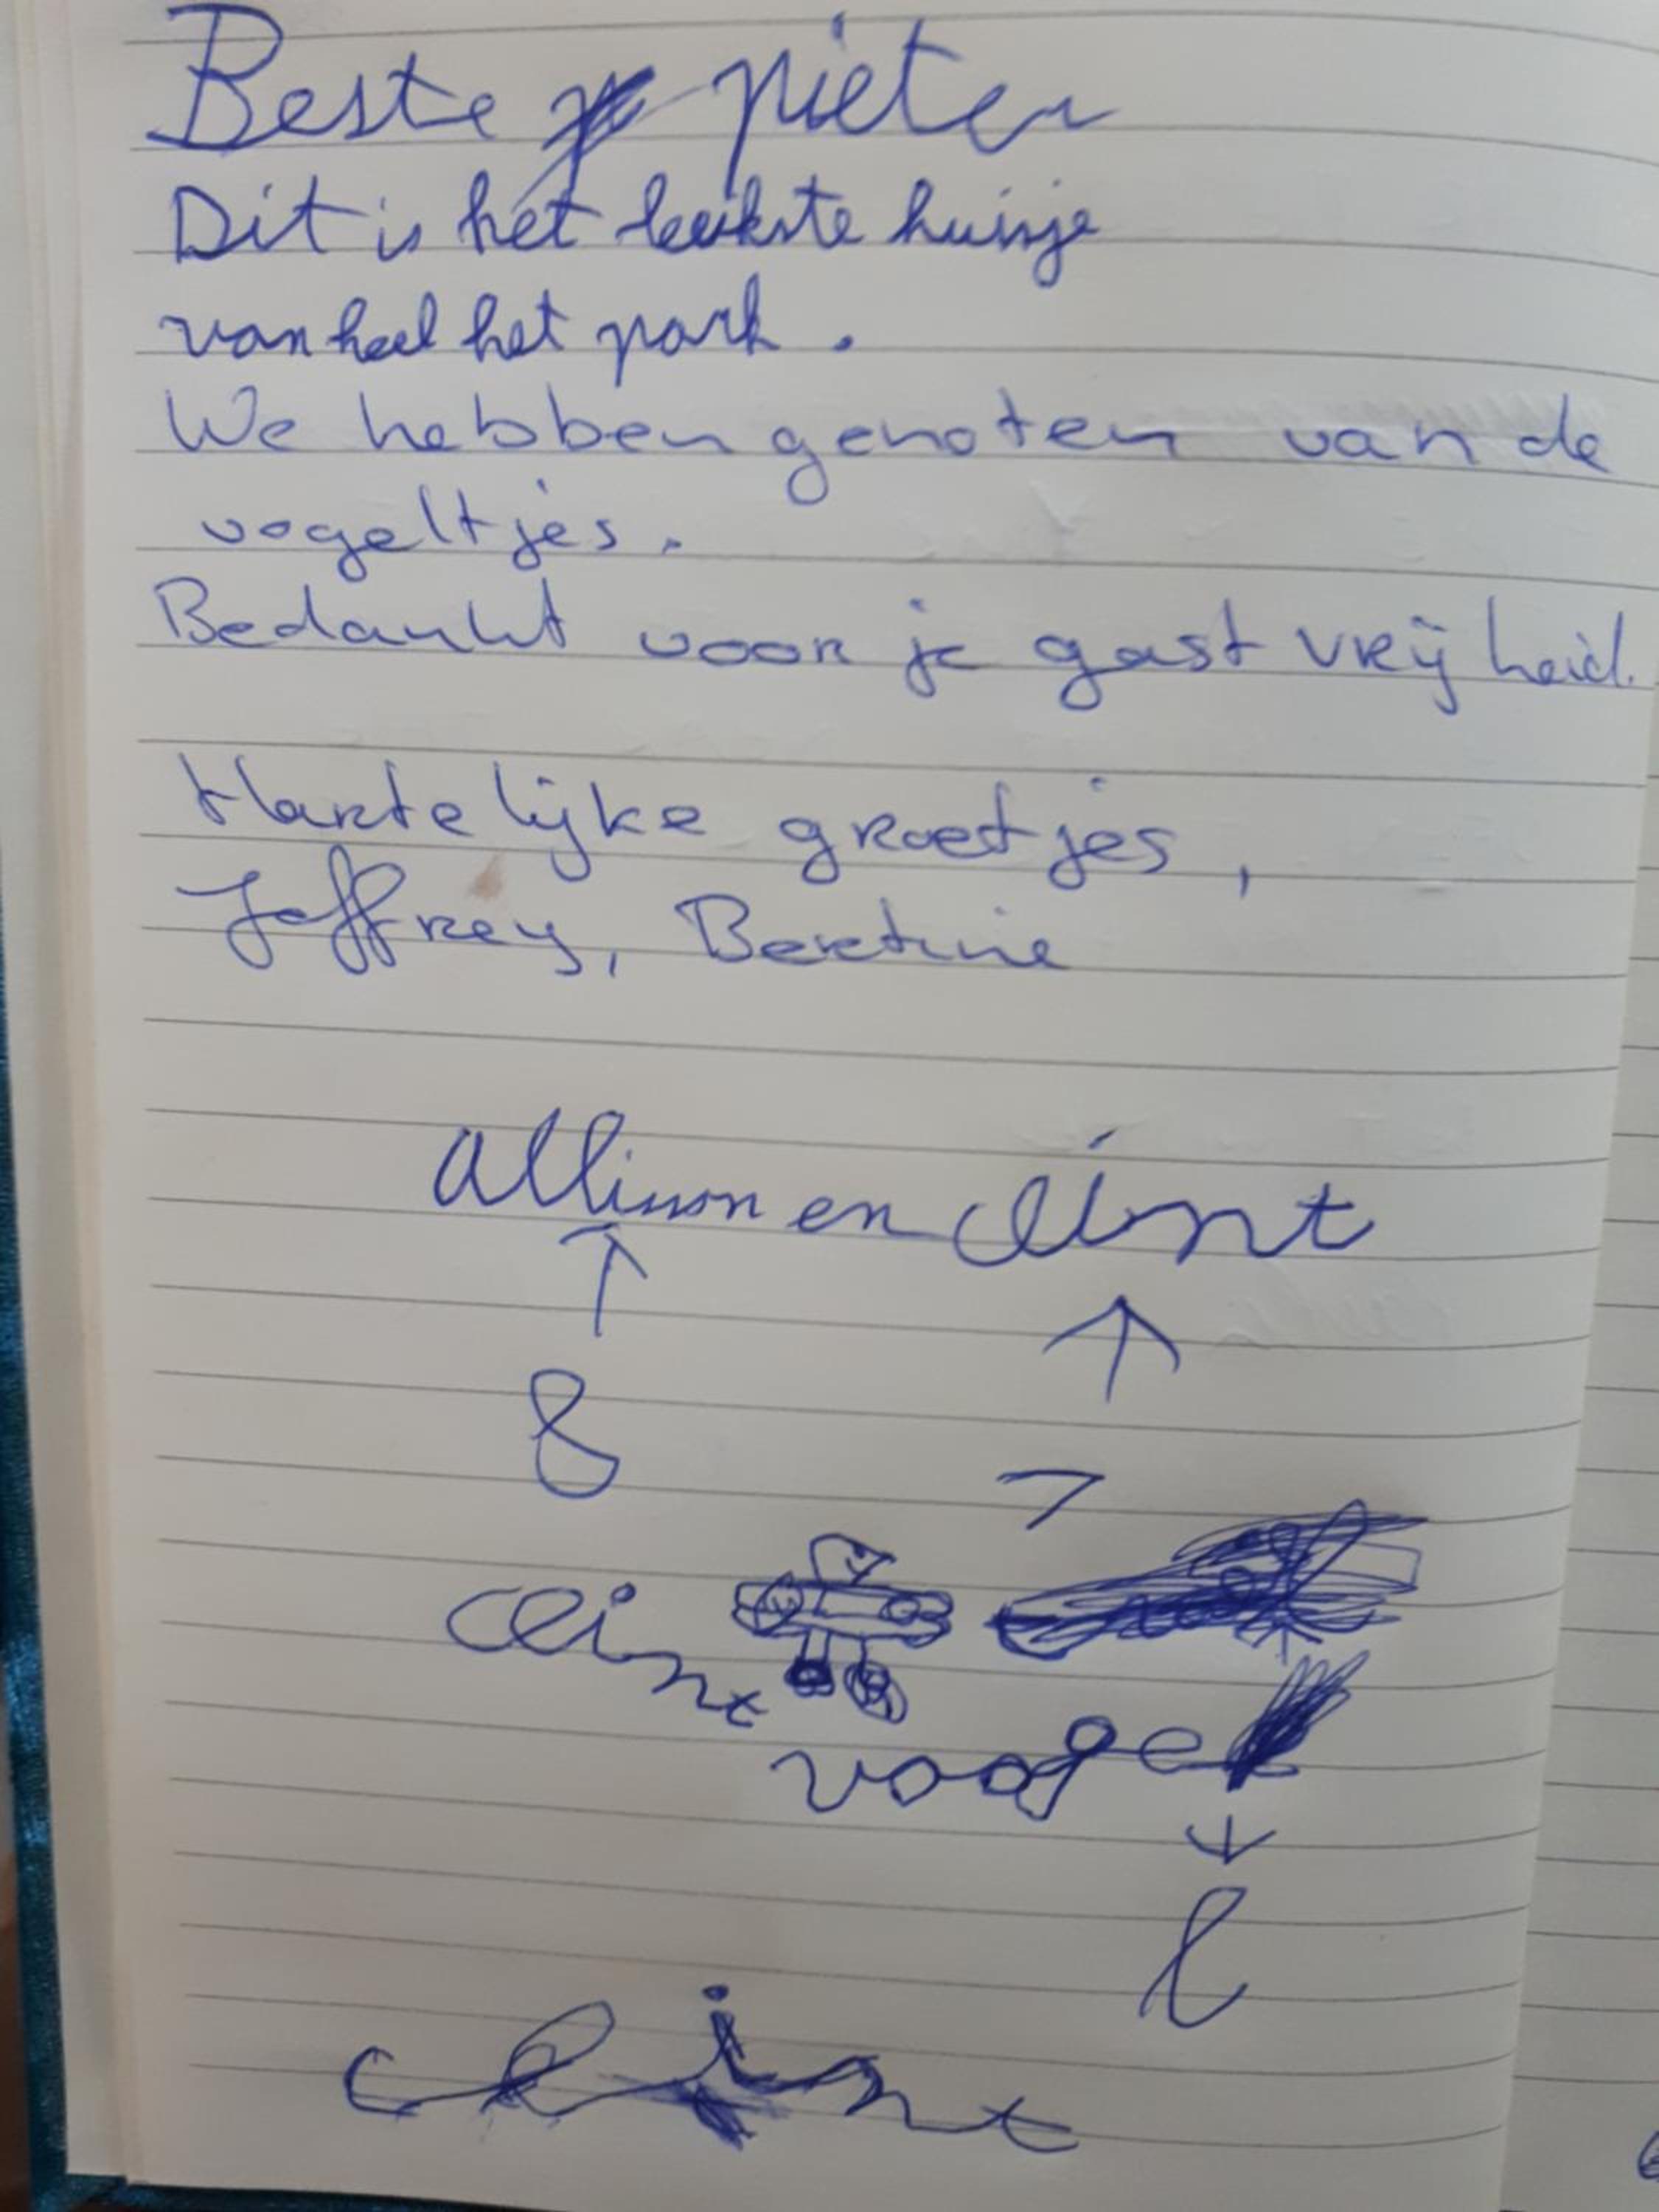 Beste pieter
Dit is het leukste huisje
van heel het park.
We hebben genoten van de
vogeltjes.
Bedankt voor je gast vrij heid.
Hartelijke groetjes,
Jeffrey, Bertine
allison en clint
↑ ↑
8 7
clint
voogel
↓
l
clint